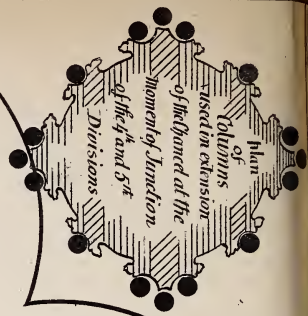 plan
of
Columns
used in extension
of the Chancel at the
moment of Junction
of the 4th and 5th
Divisions